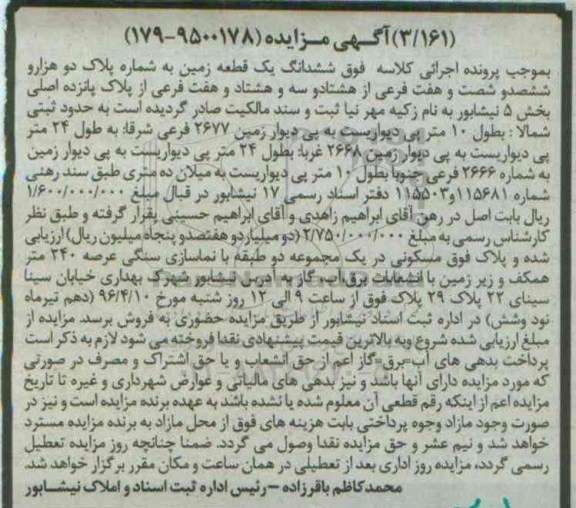 (۳/۱۶۱) آگهی مـزایده (۹۵۰۰۱۷۸-۱۷۹)
بموجب پرونده اجرائی کلاسه فوق ششدانگ یک قطعه زمین به شماره پلاک دو هزارو
ششصدو شصت و هفت فرعی از هشتادو سه و هشتاد و هفت فرعی از پلاک پانزده اصلی
بخش ۵ نیشابور به نام زکیه مهر نیا ثبت و سند مالکیت صادر گردیده است به حدود ثبتی
شمالا : بطول ۱۰ متر پی دیواریست به پی دیوار زمین ۲۶۷۷ فرعی شرقا: به طول ۲۴ متر
پی دیواریست به پی دیوار زمین ۲۶۶۸ غربا: بطول ۲۴ متر پی دیواریست به پی دیوار زمین
به شماره ۲۶۶۶ فرعی جنوبا بطول ۱۰ متر پی دیواریست به میلان ده متری طبق سند رهنی
شماره ۱۱۵۶۸۱و۱۱۵۵۰۳ دفتر اسناد رسمی ۱۷ نیشابور در قبال مبلغ ۱/۶۰۰/۰۰۰/۰۰۰
ریال بابت اصل در رهن آقای ابراهیم زاهدی و آقای ابراهیم حسینی یقرار گرفته و طبق نظر
کارشناس رسمی به مبلغ ۲/۷۵۰/۰۰۰/۰۰۰ (دو میلیارد و هفتصدو پنجاه میلیون ریال) ارزیابی
شده و پلاک فوق مسکونی در یک مجموعه دو طبقه با نماسازی سنگی عرصه ۲۴۰ متر
همکف و زیر زمین با انشعابات برق-آب-گاز به آدرس نیشابور شهرک بهداری خیابان سینا
سینای ۲۲ پلاک ۲۹ پلاک فوق از ساعت ۹ الی ۱۲ روز شنبه مورخ ۹۶/۴/۱۰ (دهم تیرماه
نود وشش) در اداره ثبت اسناد نیشابور از طریق مزایده حضوری به فروش برسد. مزایده از
مبلغ ارزیابی شده شروع وبه بالاترین قیمت پیشنهادی نقدا فروخته می شود لازم به ذکر است
پرداخت بدهی های آب-برق-گاز اعم از حق انشعاب و یا حق اشتراک و مصرف در صورتی
که مورد مزایده دارای آنها باشد و نیز بدهی های مالیاتی و عوارض شهرداری و غیره تا تاریخ
مزایده اعم از اینکه رقم قطعی آن معلوم شده یا نشده باشد به عهده برنده مزایده است و نیز در
صورت وجود مازاد وجوه پرداختی بابت هزینه های فوق از محل مازاد به برنده مزایده مسترد
خواهد شد و نیم عشر و حق مزایده نقدا وصول می گردد. ضمنا چنانچه روز مزایده تعطیل
رسمی گردد، مزایده روز اداری بعد از تعطیلی در همان ساعت و مکان مقرر برگزار خواهد شد.
محمدکاظم باقرزاده -رئیس اداره ثبت اسناد و املاک نیشـابور